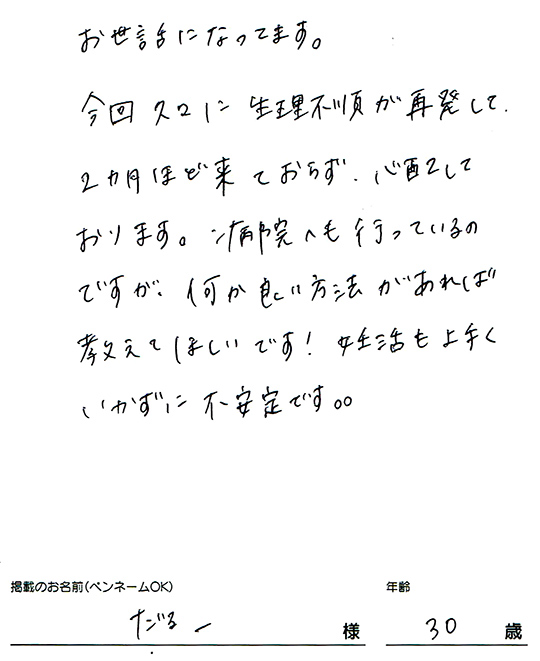 お世話になってます。
今回久々に生理不順が再発して、
2カ月ほど来ておらず、心配して
おります。病院へも行っているの
ですが、何か良い方法があれば
教えてほしいです！妊活も上手く
いかずに不安定です。。
掲載のお名前(ペンネームOK)
だるー 様
年齢
30 歳